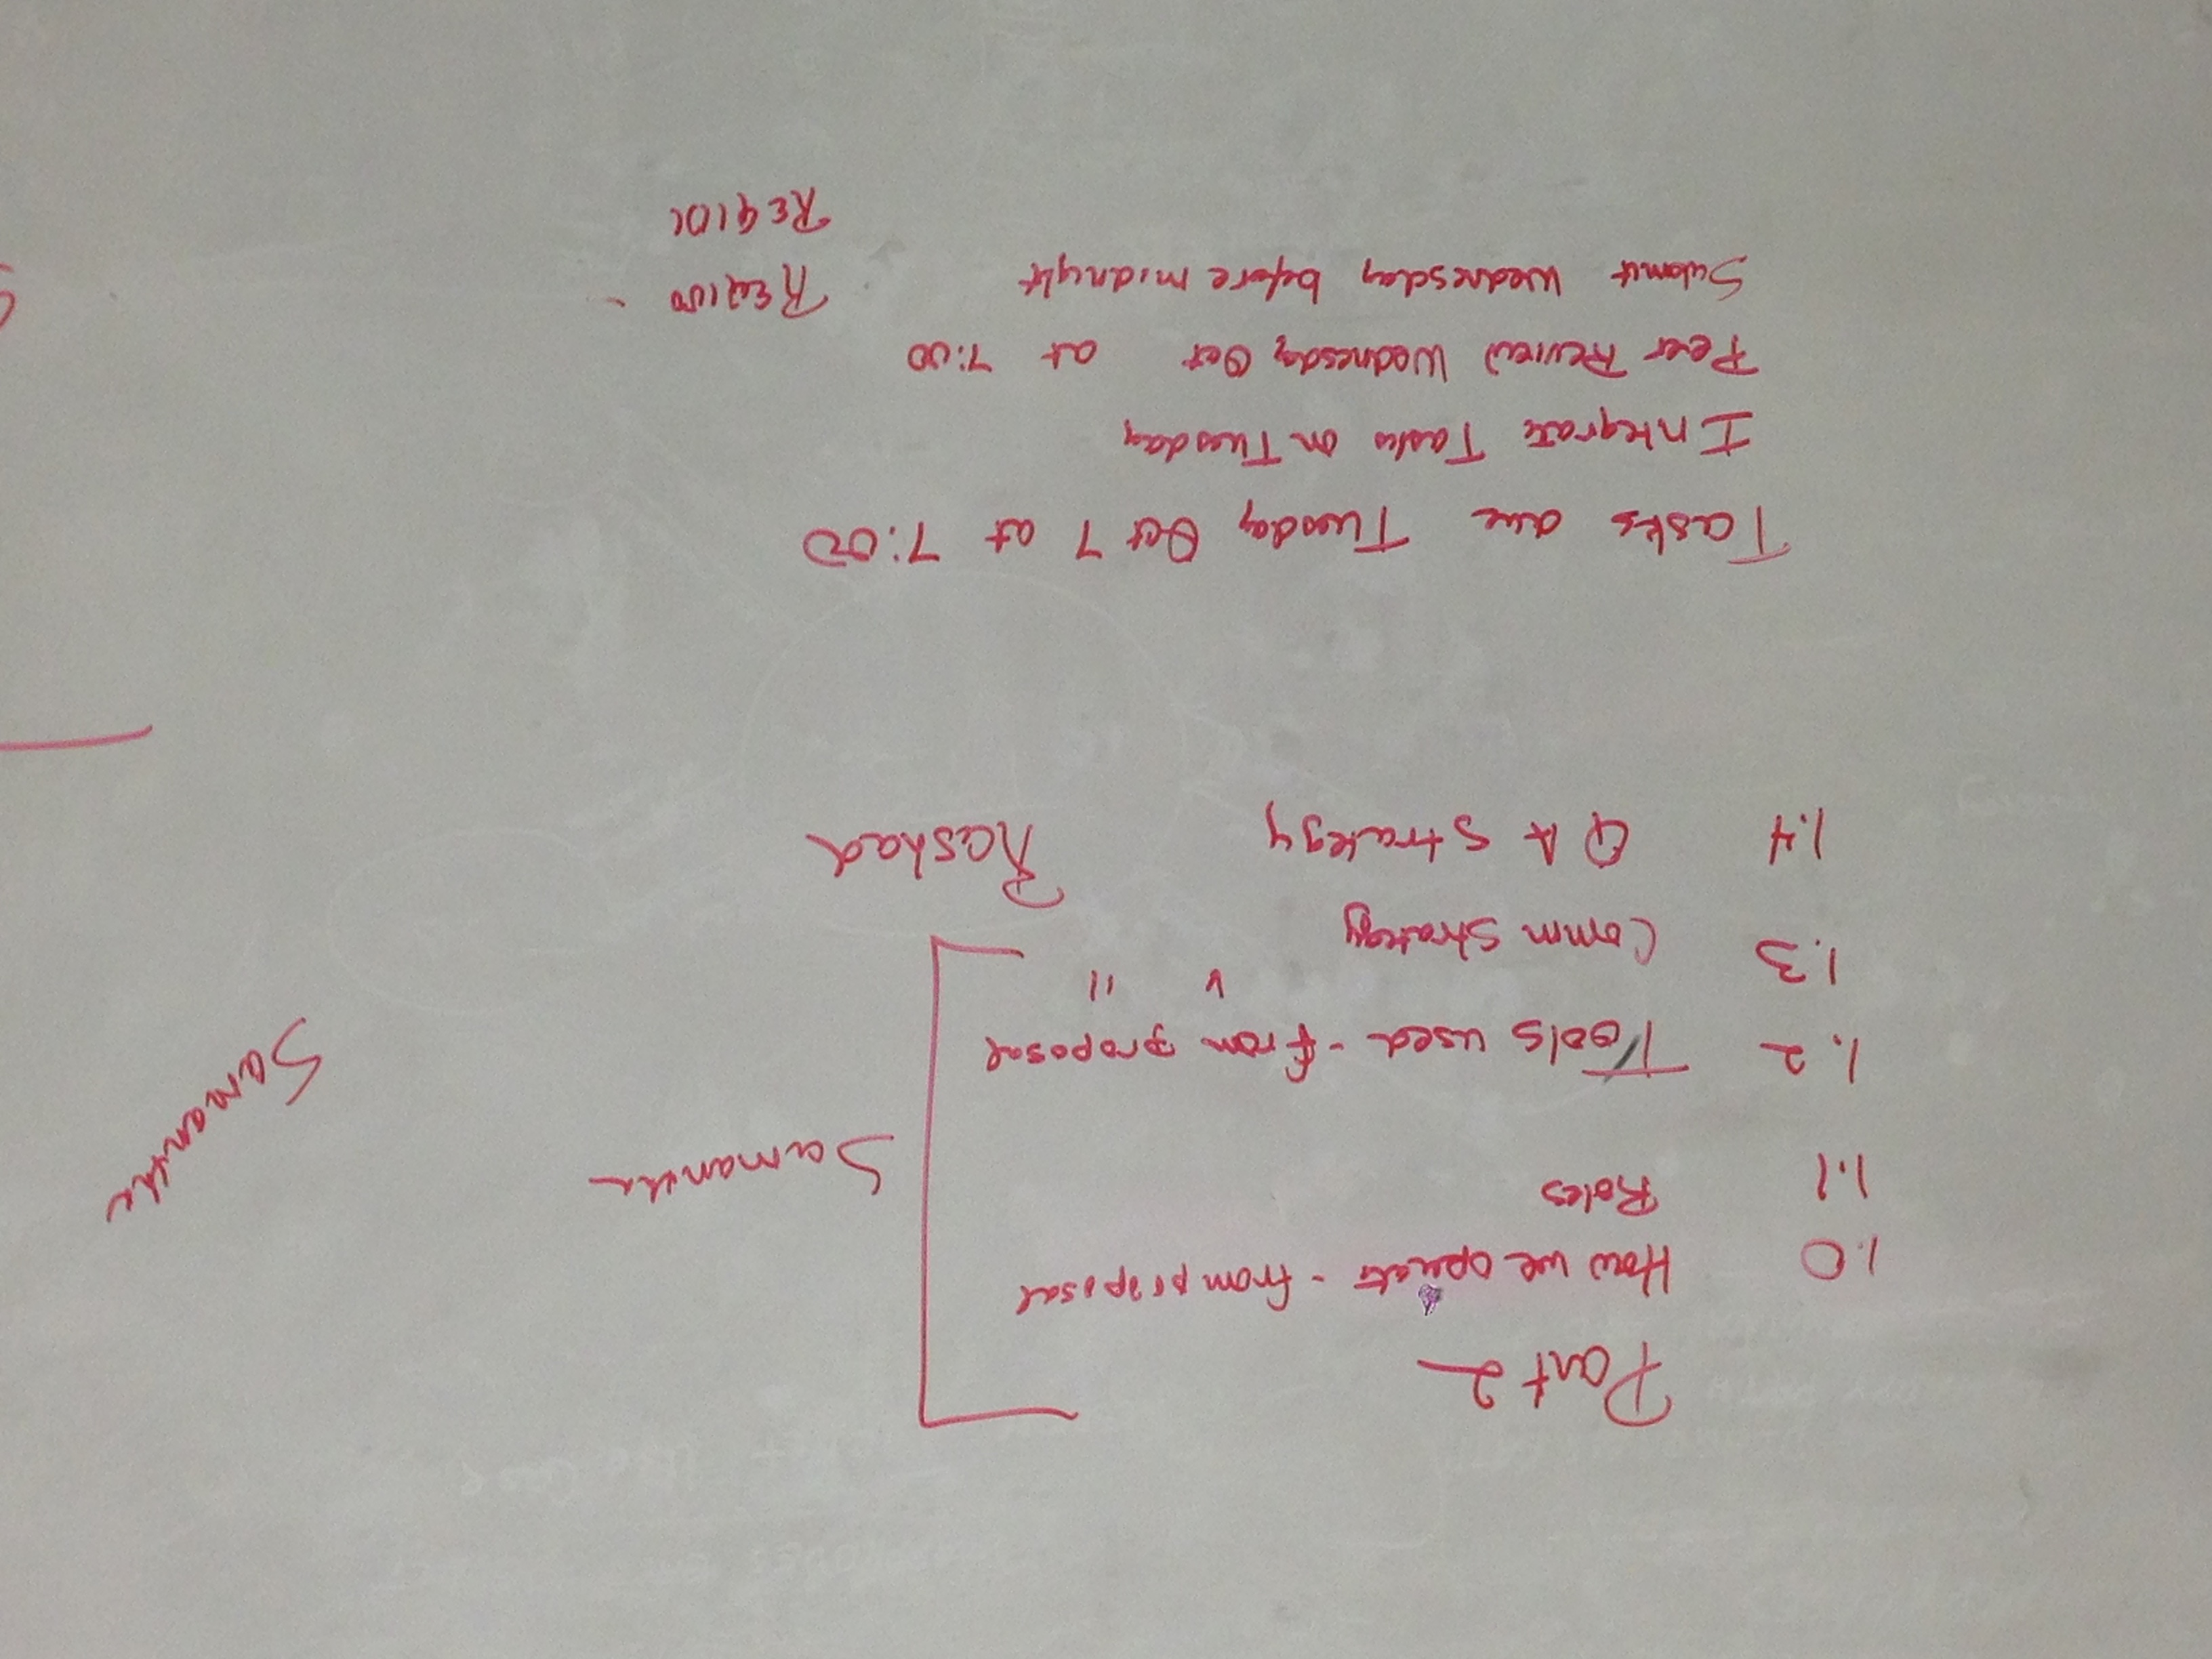 Part 2
1.0 How we operate - from proposal
1.1 Roles
Samantha
Samantha
1.2 Tools used - from proposal
1.3 Comm strategy " "
1.4 QA strategy Rashad
Tasks due Tuesday Oct 7 at 7:00
Integrate Tasks on Tuesday
Peer Review Wednesday Oct at 7:00
Submit Wednesday before midnight
REQ100 -
REQ101